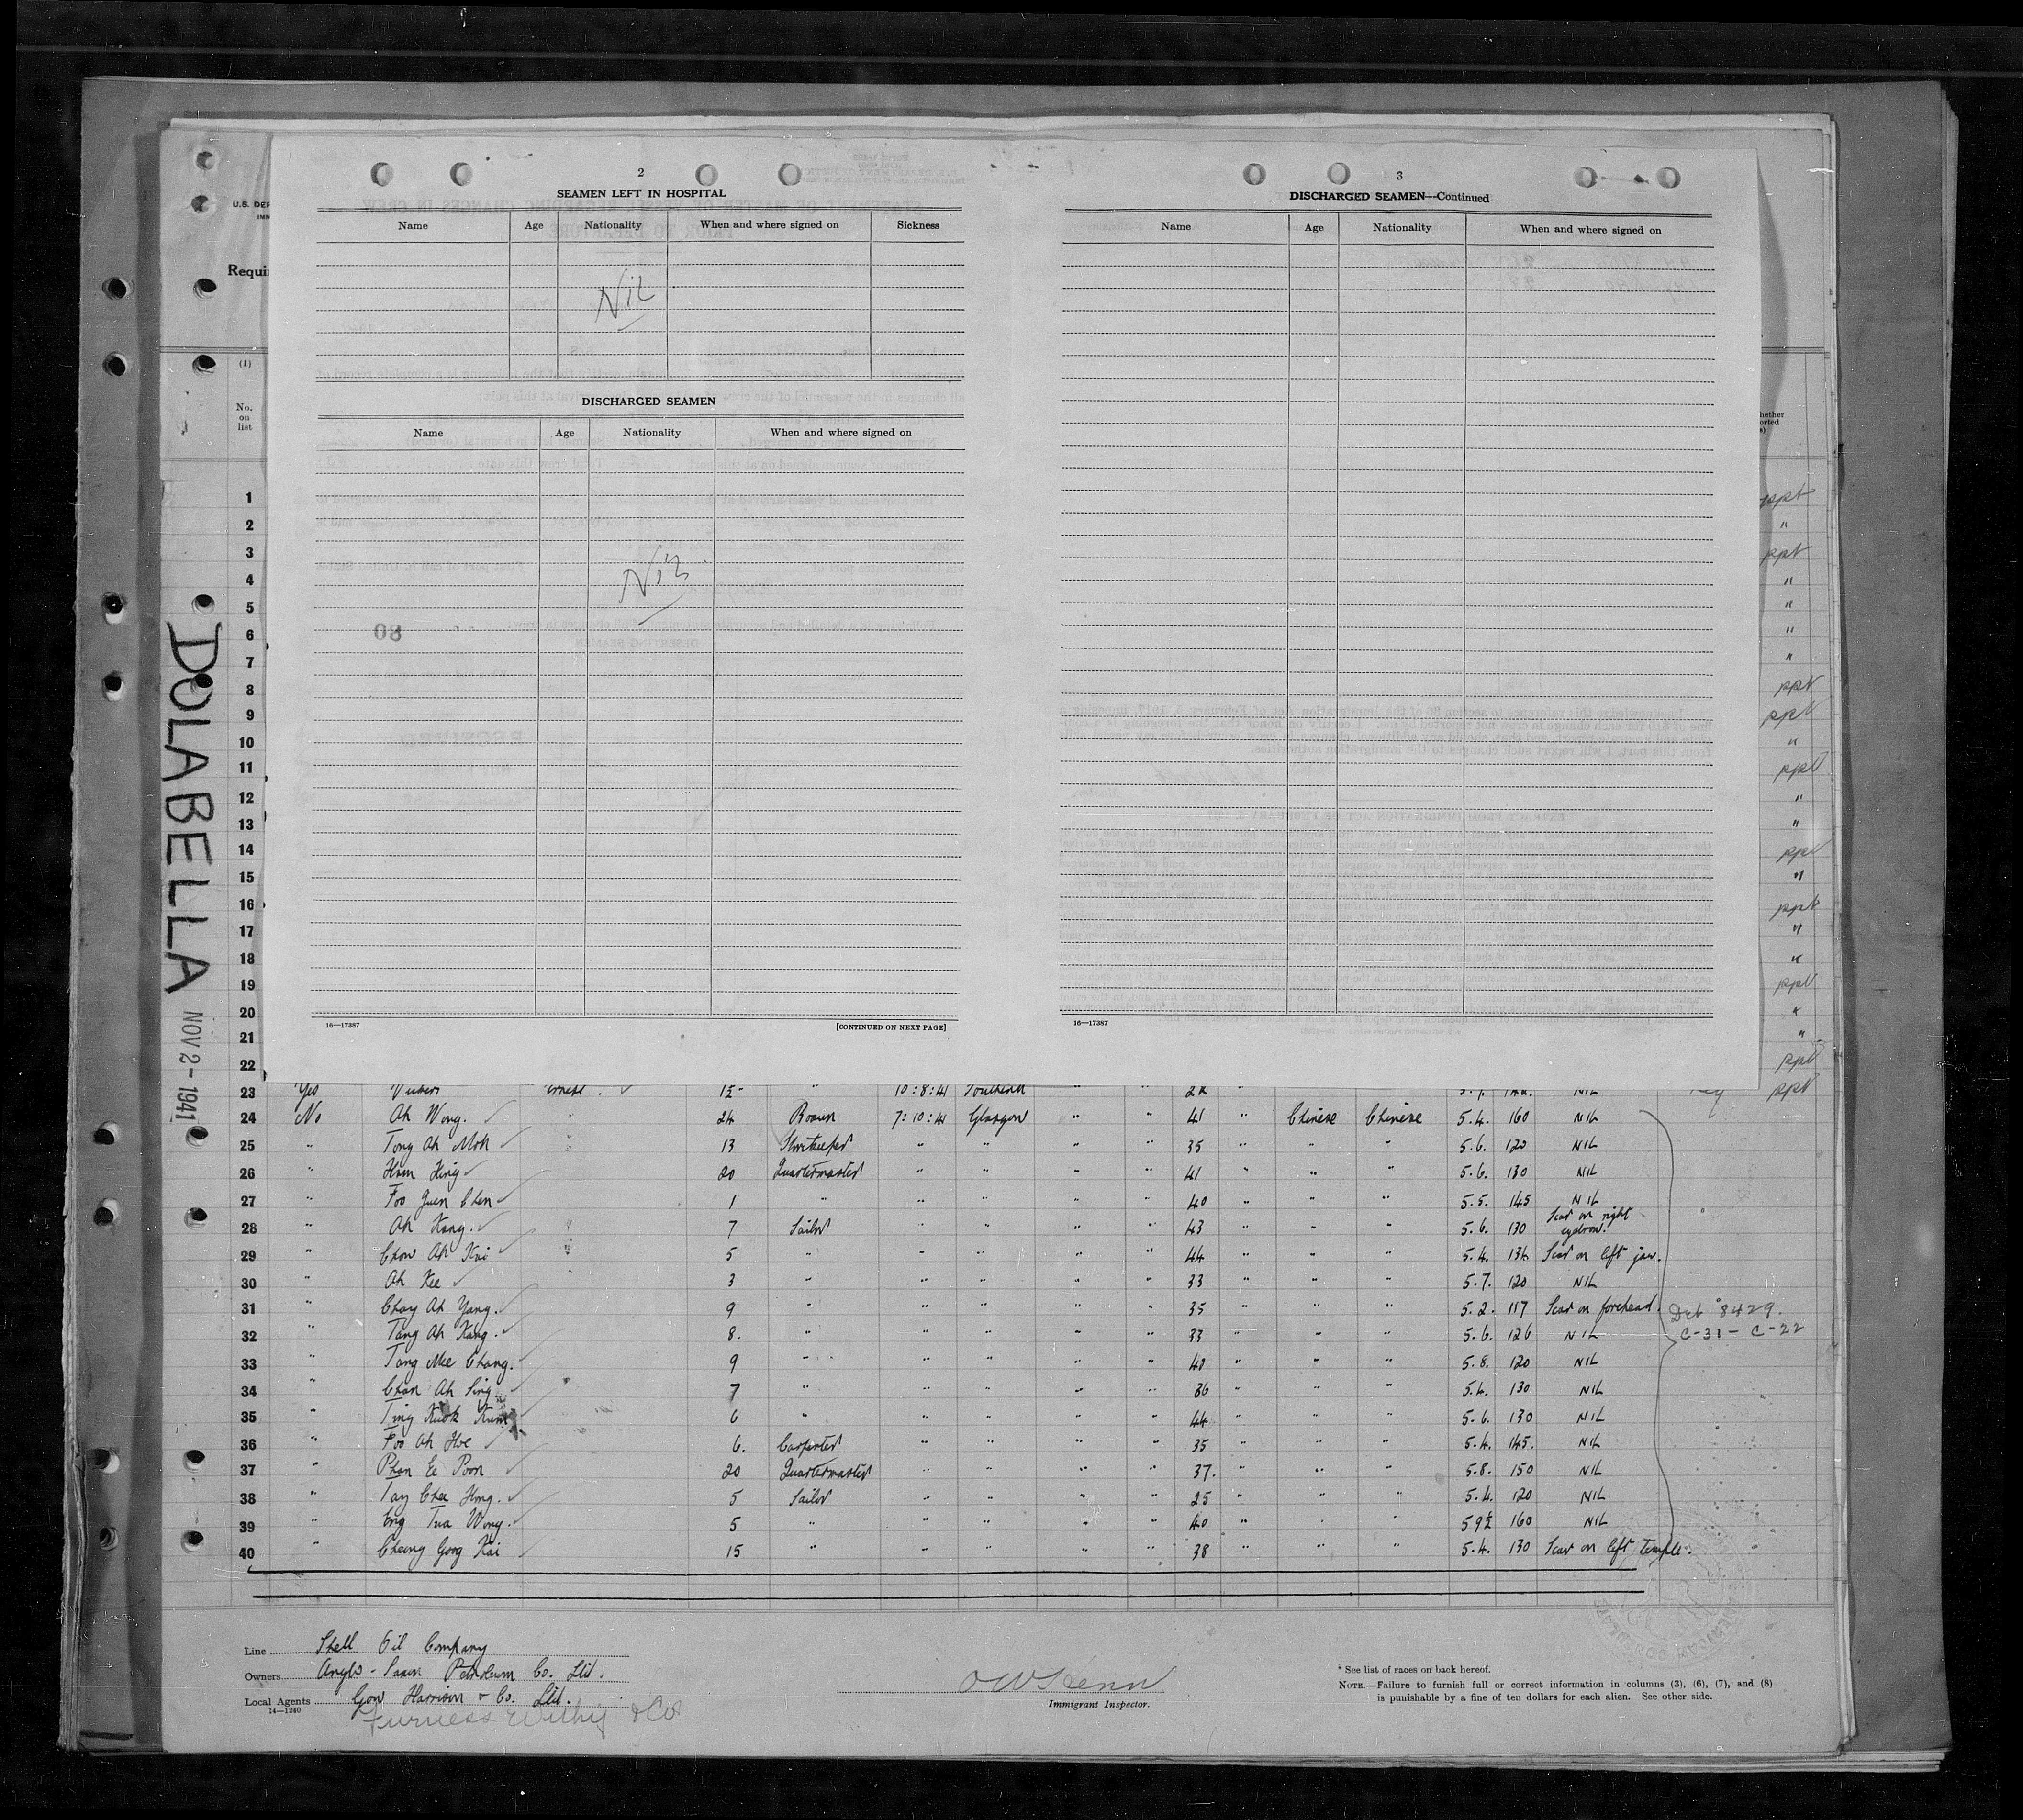 DOLABELLA NOV 2 - 1941
U.S. DEP
IMM
Requi
(1)
No.
on
list
2
SEAMEN LEFT IN HOSPITAL
Name Age Nationality When and where signed on Sickness
Nil
DISCHARGED SEAMEN
Name Age Nationality When and where signed on
Nil
16—17387 [CONTINUED ON NEXT PAGE]
3
DISCHARGED SEAMEN—Continued
Name Age Nationality When and where signed on
16—17387
hether
orted
s)
1 ppt
2 "
3 ppt
4 "
5 "
6 "
7 "
8 ppt
9 ppt
10 "
11 ppt
12 "
13 "
14 ppt
15 "
16 ppt
17 "
18 "
19 ppt
20 "
21 "
22 ppt
23 Yes Ernest 10:8:41 " " " NIL ppt
24 No Ah Wong. 24 Bosun 7:10:41 Glasgow " " 41 " Chinese Chinese 5.4. 160 NIL
25 " Tong Ah Moh 13 Storekeeper " " " " 35 " " " 5.6. 120 NIL
26 " Ham King 20 Quartermaster " " " " 41 " " " 5.6. 130 NIL
27 " Foo Juen Chen 1 " " " " " 40 " " " 5.5. 145 NIL
28 " Ah Kang. 7 Sailor " " " " 43 " " " 5.6. 130 Scar on right eyebrow.
29 " Chow Ah Kai 5 " " " " " 44 " " " 5.4. 134 Scar on left jaw.
30 " Ah Kee 3 " " " " " 33 " " " 5.7. 120 NIL
31 " Chay Ah Yang. 9 " " " " " 35 " " " 5.2. 117 Scar on forehead.
32 " Tang Ah Kang. 8. " " " " " 33 " " " 5.6. 126 NIL
Det 8429.
C-31 - C-22
33 " Tang Mee Chang. 9 " " " " " 40 " " " 5.8. 120 NIL
34 " Chan Ah Sing. 7 " " " " " 36 " " " 5.4. 130 NIL
35 " Ting Kuok Kum 6 " " " " " 44 " " " 5.6. 130 NIL
36 " Foo Ah Hoe 6. Carpenter " " " " 35 " " " 5.4. 145. NIL
37 " Phan Ee Poon 20 Quartermaster " " " " 37. " " " 5.8. 150 NIL
38 " Tay Chea Hong. 5 Sailor " " " " 25 " " " 5.4. 120 NIL
39 " Eng Tua Wong. 5 " " " " " 40 " " " 5 9½ 160 NIL
40 " Cheong Goog Kai 15 " " " " " 38 " " " 5.4. 130 Scar on left temple.
Line Shell Oil Company
Owners Anglo-Saxon Petroleum Co. Ltd.
Local Agents Gow Harrison & Co. Ltd.
14—1240
Furness Withy & Co
Immigrant Inspector.
* See list of races on back hereof.
NOTE.—Failure to furnish full or correct information in columns (3), (6), (7), and (8)
is punishable by a fine of ten dollars for each alien. See other side.